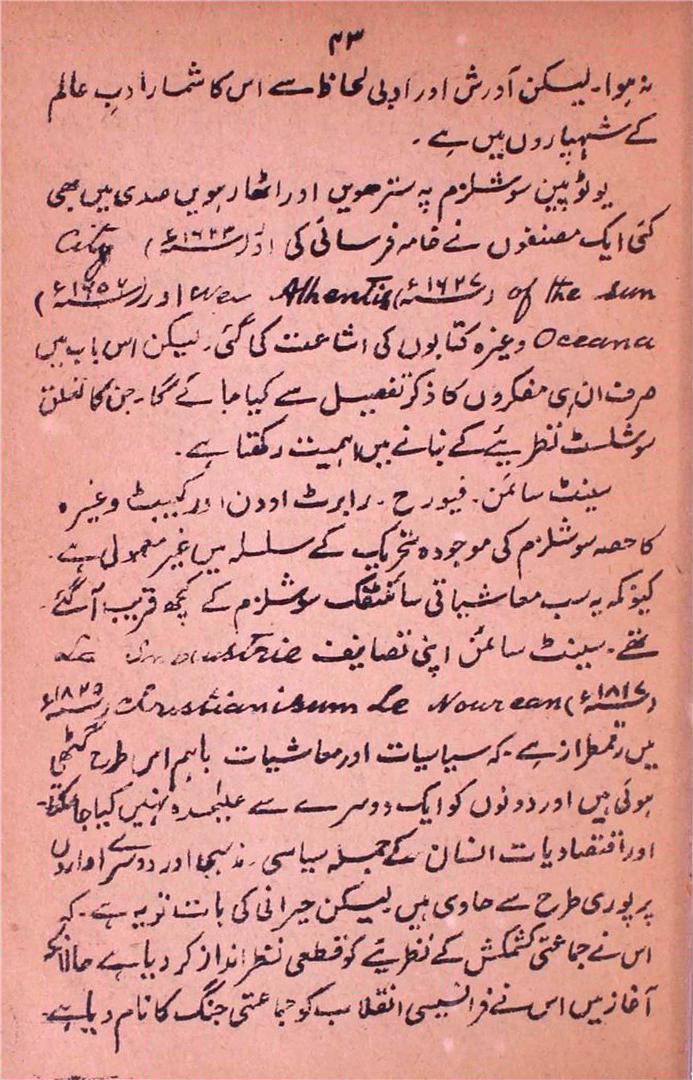 ۴۳
نہ ہوا۔ لیکن آدرش اور ادبی لحاظ سے اس کا شمار ادبِ عالم
کے شہپاروں میں ہے۔
یوٹوپین سوشلزم پہ سترھویں اور اٹھارہویں صدی میں بھی
کئی ایک مصنفوں نے خامہ فرسائی کی اور (۱۶۲۳ء) City
of the sun (۱۶۲۷ء) New Athentis اور (۱۶۵۶ء)
Oceana وغیرہ کتابوں کی اشاعت کی گئی۔ لیکن اس باب میں
صرف ان ہی مفکروں کا ذکر تفصیل سے کیا جائے گا۔ جن کا تعلق
سوشلسٹ نظریئے کے بنانے میں اہمیت رکھتا ہے۔
سینٹ سائمن۔ فیورح۔ رابرٹ اوون اور کیبٹ وغیرہ
کا حصہ سوشلزم کی موجودہ تحریک کے سلسلہ میں غیر معمولی ہے۔
کیونکہ یہ سب معاشیاتی سائنٹفک سوشلزم کے کچھ قریب آ گئے
تھے۔ سینٹ سائمن اپنی تصانیف Le Industrie
(۱۸۱۷ء) Christianisum Le Nourean (۱۸۲۵ء)
میں رقمطراز ہے۔ کہ سیاسیات اور معاشیات باہم اس طرح گتھی
ہوئی ہیں اور دونوں کو ایک دوسرے سے علیٰحدہ نہیں کیا جا سکتا۔
اور اقتصادیات انسان کے جملہ سیاسی۔ مذہبی اور دوسرے اداروں
پر پوری طرح سے حاوی ہیں۔ لیکن حیرانی کی بات تو یہ ہے۔ کہ
اس نے جماعتی کشمکش کے نظریئے کو قطعی نظر انداز کر دیا ہے حالانکہ
آغاز میں اس نے فرانسیسی انقلاب کو جماعتی جنگ کا نام دیا ہے۔